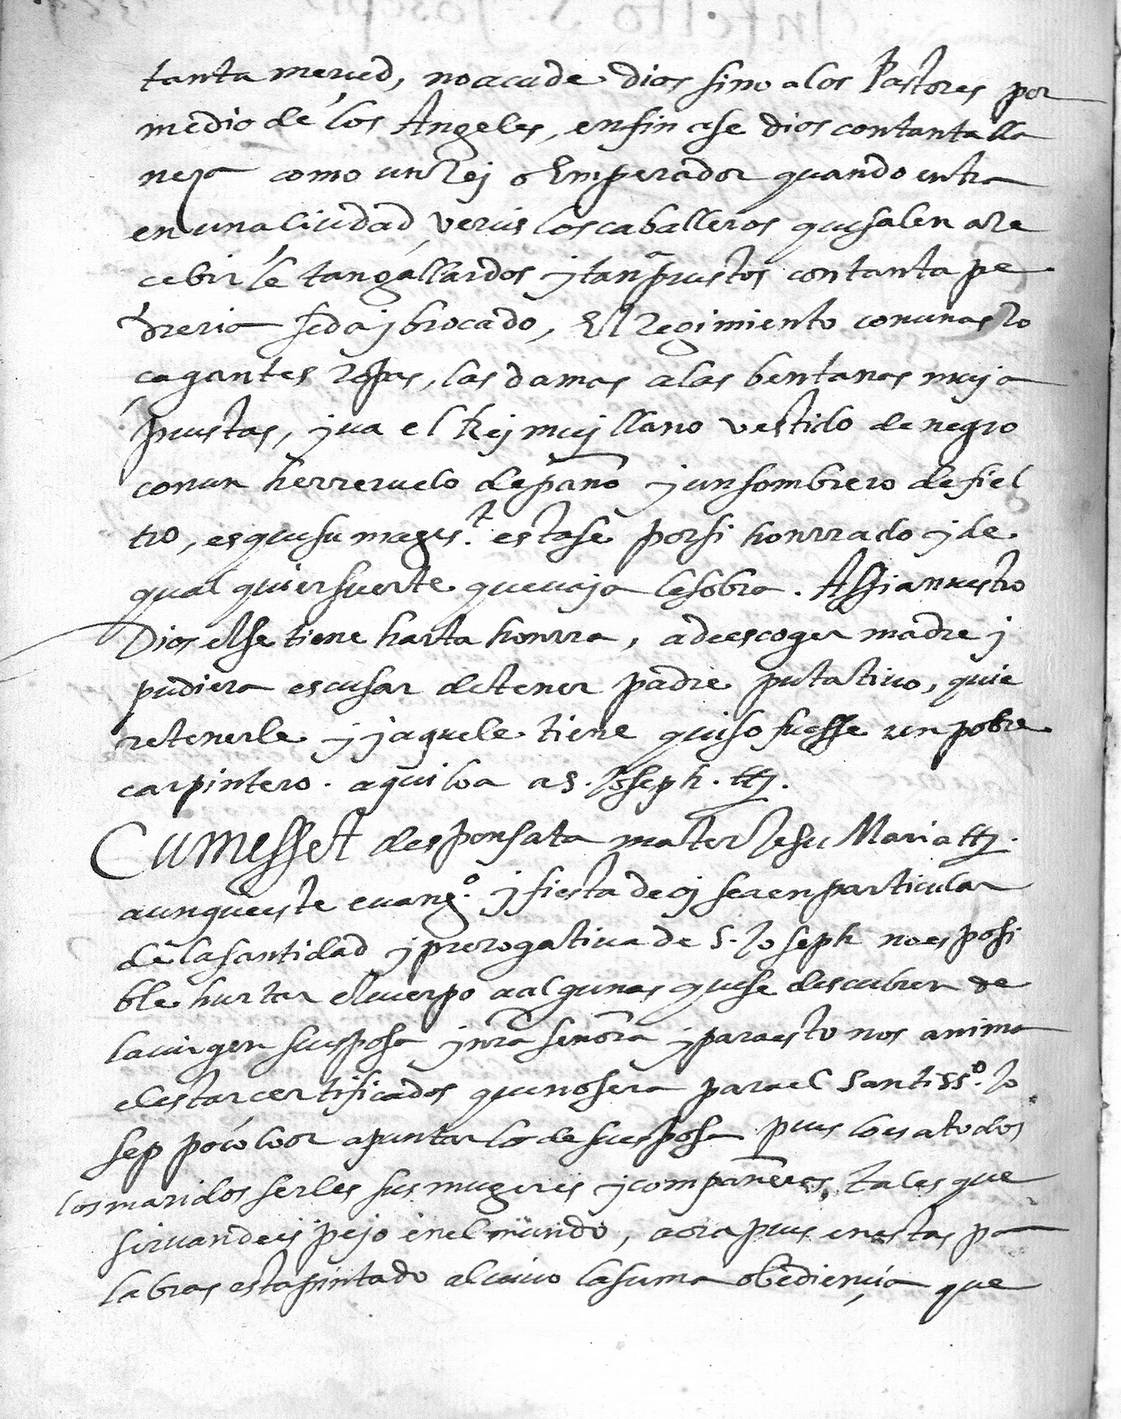 tanta merced, no acude dios sino a los Pastores por
medio de los Angeles, en fin ase dios con tanta lla
neza como un Rej o Emperador quando entra
en una ciudad, vereis los caballeros que salen a Re
cebirle tan gallardos y tan puestos con tanta pe
dreria seda j brocado, El Regimiento con unas Ro
çagantes Ropas, las damas a las bentanas muj a
puestas, j va el Rej muj llano vestido de negro
con un herreruelo de paño y un sombrero de fiel
tro, es que su magest. estase por si honrrado y de
qual quier suerte que vaja le sobra. Assi a nuestro
Dios el se tiene harta honrra, a de escoger madre j
pudiera escusar de tener padre putativo, quie
re tenerle y ja que le tiene quiso fuesse un pobre
carpintero. aqui loa a S. Joseph. ttz.
Cum esset desponsata mater Jesu Maria ttz.
aunque este evangº. y fiesta de oj sea en particular
de la santidad y prerogativa de S. Joseph no es posi
ble hurtar el cuerpo a algunas que se descubren de
la virgen su esposa y nra señora y para esto nos anima
el estar certificados que no sera para el Santissº. Jo
sep poco loor apuntar los de su esposa pues lo es a todos
los maridos serles sus mugeres y compañeras, tales que
sirvan de espejo en el mundo, aora pues en estas pa
labras esta pintado al vivo la suma obediençia que